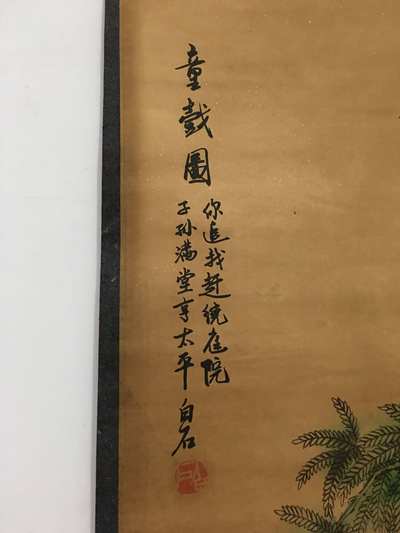 童戲圖
你追我赶绕庭院
子孙满堂享太平
白石